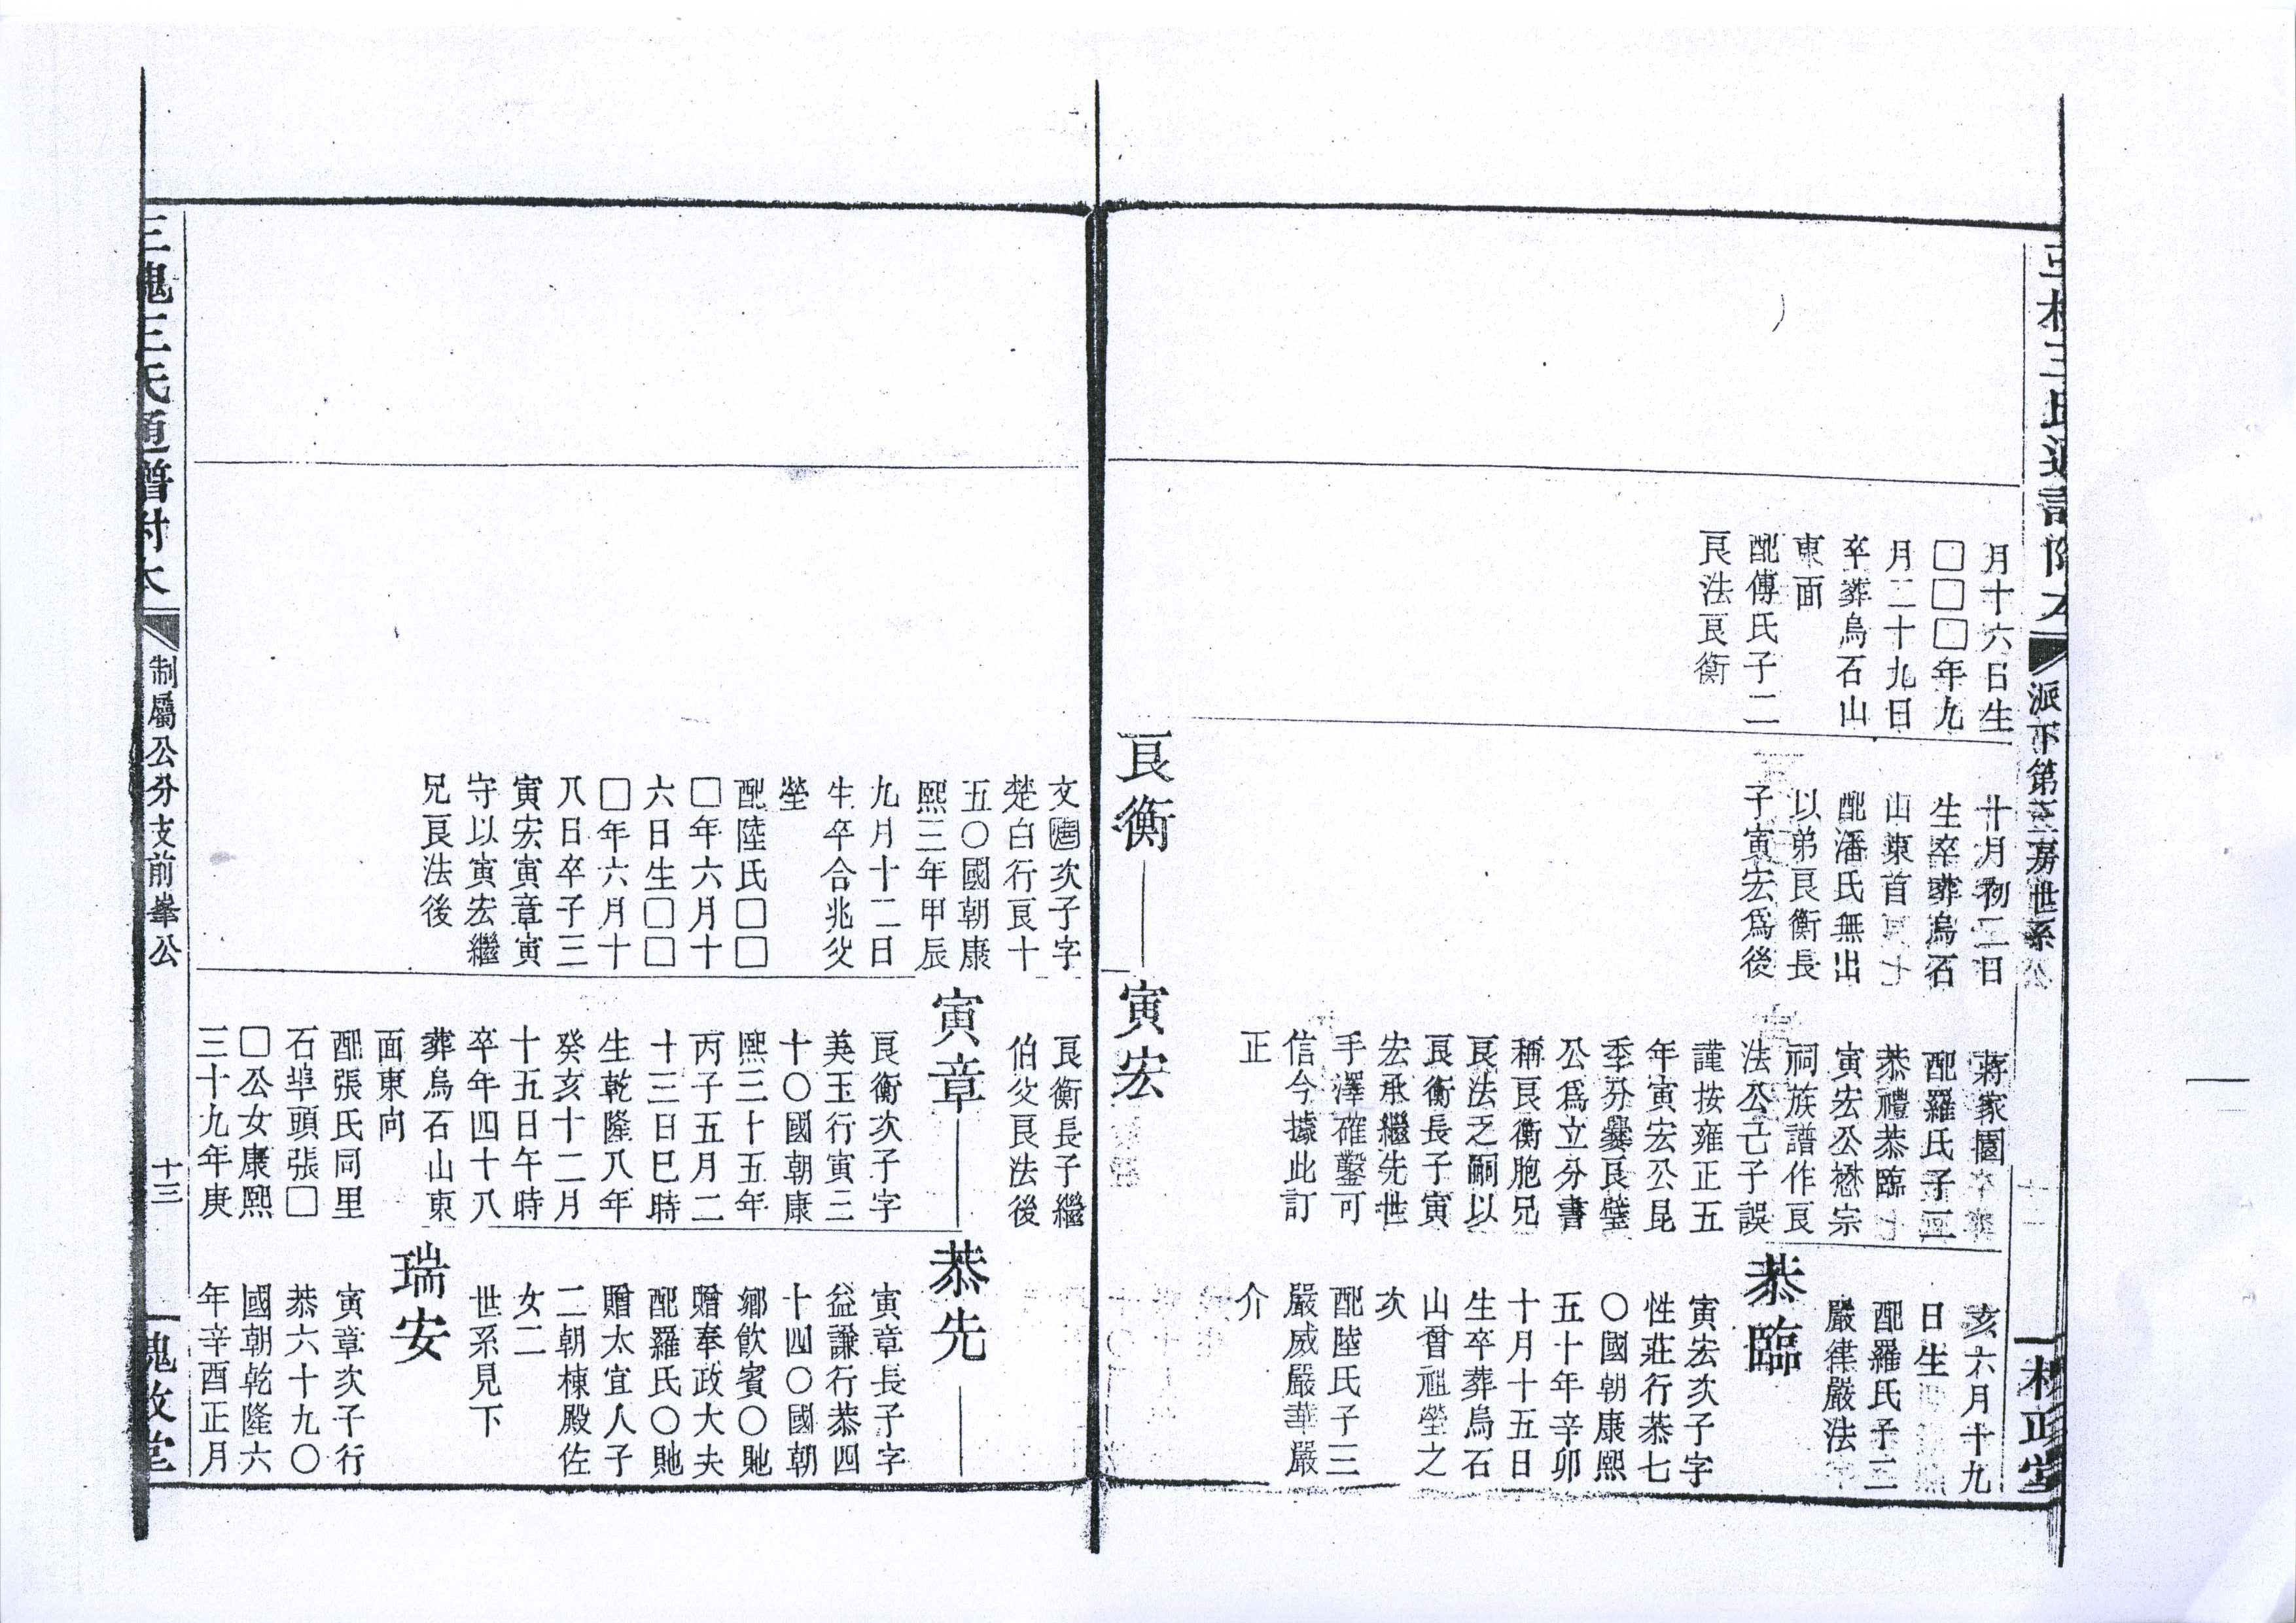 派下第三房世系
月十六日生
□□□年九
月二十九日
卒葬烏石山
東面
配傅氏子二
艮法艮衡
十月初二日
生卒葬烏石
山東首
配潘氏無出
以弟艮衡長
子寅宏爲後
艮衡
蔣家園
配羅氏子二
恭禮恭臨
寅宏公懋宗
祠族譜作艮
法公己子誤
謹按雍正五
年寅宏公昆
季分爨艮璧
公爲立分書
稱艮衡胞兄
艮法乏嗣以
艮衡長子寅
宏承繼先世
手澤確鑿可
信今據此訂
正
寅宏
亥六月十九
日生
配羅氏子二
嚴律嚴法
恭臨
寅宏次子字
性莊行恭七
〇國朝康熙
五十年辛卯
十月十五日
生卒葬烏石
山曾祖塋之
次
配陸氏子三
嚴威嚴華嚴
介
文次子字
楚白行艮十
五〇國朝康
熙三年甲辰
九月十二日
生卒合兆父
塋
配陸氏□□
□年六月十
六日生□□
□年六月十
八日卒子三
寅宏寅章寅
守以寅宏繼
兄艮法後
艮衡長子繼
伯父艮法後
寅章
艮衡次子字
美玉行寅三
十〇國朝康
熙三十五年
丙子五月二
十三日巳時
生乾隆八年
癸亥十二月
十五日午時
卒年四十八
葬烏石山東
面東向
配張氏同里
石埠頭張□
□公女康熙
三十九年庚
恭先
寅章長子字
益謙行恭四
十四〇國朝
鄉飲賓〇貤
贈奉政大夫
配羅氏〇貤
贈太宜人子
二朝棟殿佐
女二
世系見下
瑞安
寅章次子行
恭六十九〇
國朝乾隆六
年辛酉正月
三槐王氏通譜附本
制屬公分支前峯公
十三